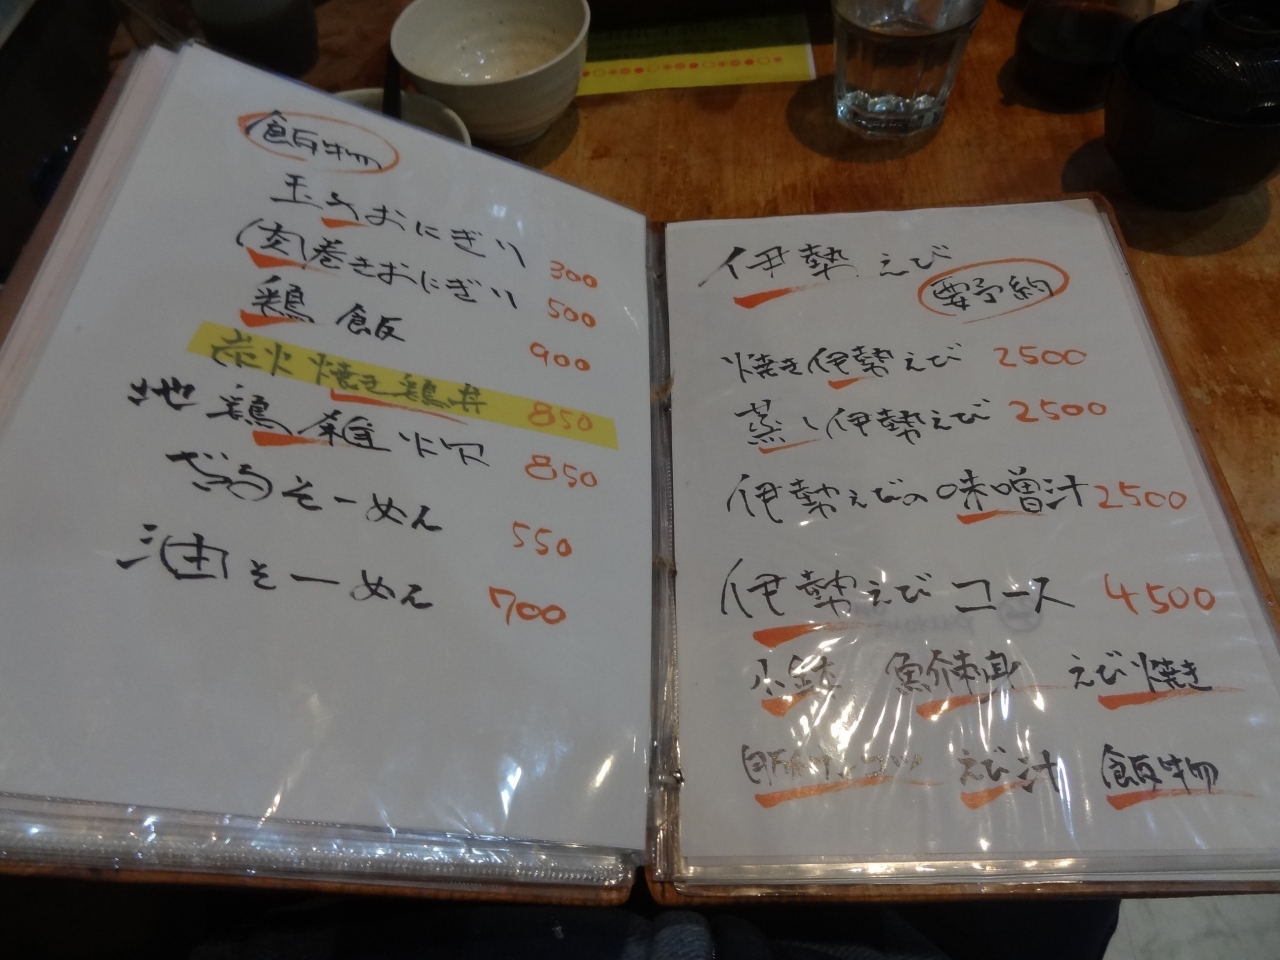 飯物
玉子おにぎり 300
(肉)巻きおにぎり 500
鶏飯 900
炭火焼き鶏丼 850
地鶏雑炊 850
そーめん 550
油そーめん 700
伊勢えび
要予約
焼き伊勢えび 2500
蒸し伊勢えび 2500
伊勢えびの味噌汁 2500
伊勢えびコース 4500
小鉢 刺身 えび焼き
えび汁 飯物